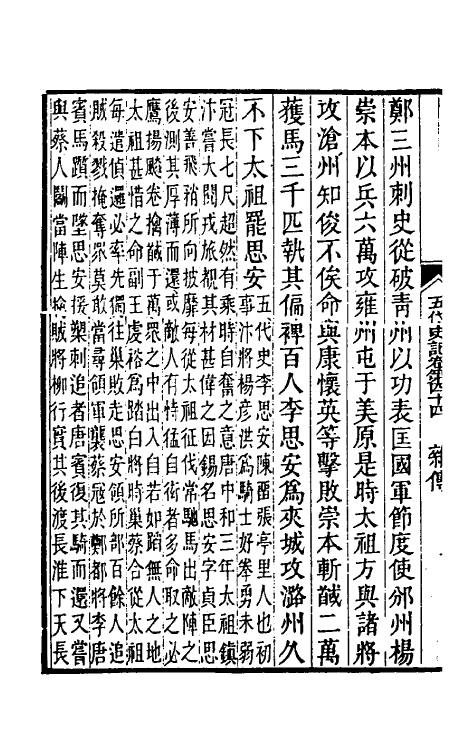 五代史記卷第四十四　雜傳
鄭三州刺史從破青州以功表匡國軍節度使邠州楊
崇本以兵六萬攻雍州屯于美原是時太祖方與諸將
攻滄州知俊不俟命與康懷英等擊敗崇本斬馘二萬
獲馬三千匹執其偏裨百人李思安為夾城攻潞州久
不下太祖罷思安
五代史李思安陳留張亭里人也初
事汴將楊彥洪為騎士好拳勇未弱
冠長七尺超然有乘時自奮之意唐中和三年太祖鎮
汴嘗大閱戎旅覩其材甚偉之因錫名思安字貞臣思
安善飛矟所向披靡每從太祖征伐常馳馬出敵陣之
後測其厚薄而還或敵人有恃猛自衒者多命取之必
鷹揚飈卷擒馘于萬眾之中出入自若如蹈無人之地
太祖甚惜之命副王虔裕為踏白將時巢蔡合從太祖
每遣偵邏必率先獨往巢敗走思安領所部百餘人追
賊殺戮掩奪眾莫敢當尋領軍襲蔡寇於鄭都將李唐
賓馬躓而墜思安援槊刺追者唐賓復其騎而還又嘗
與蔡人鬬當陣生擒賊將柳行實其後渡長淮下天長